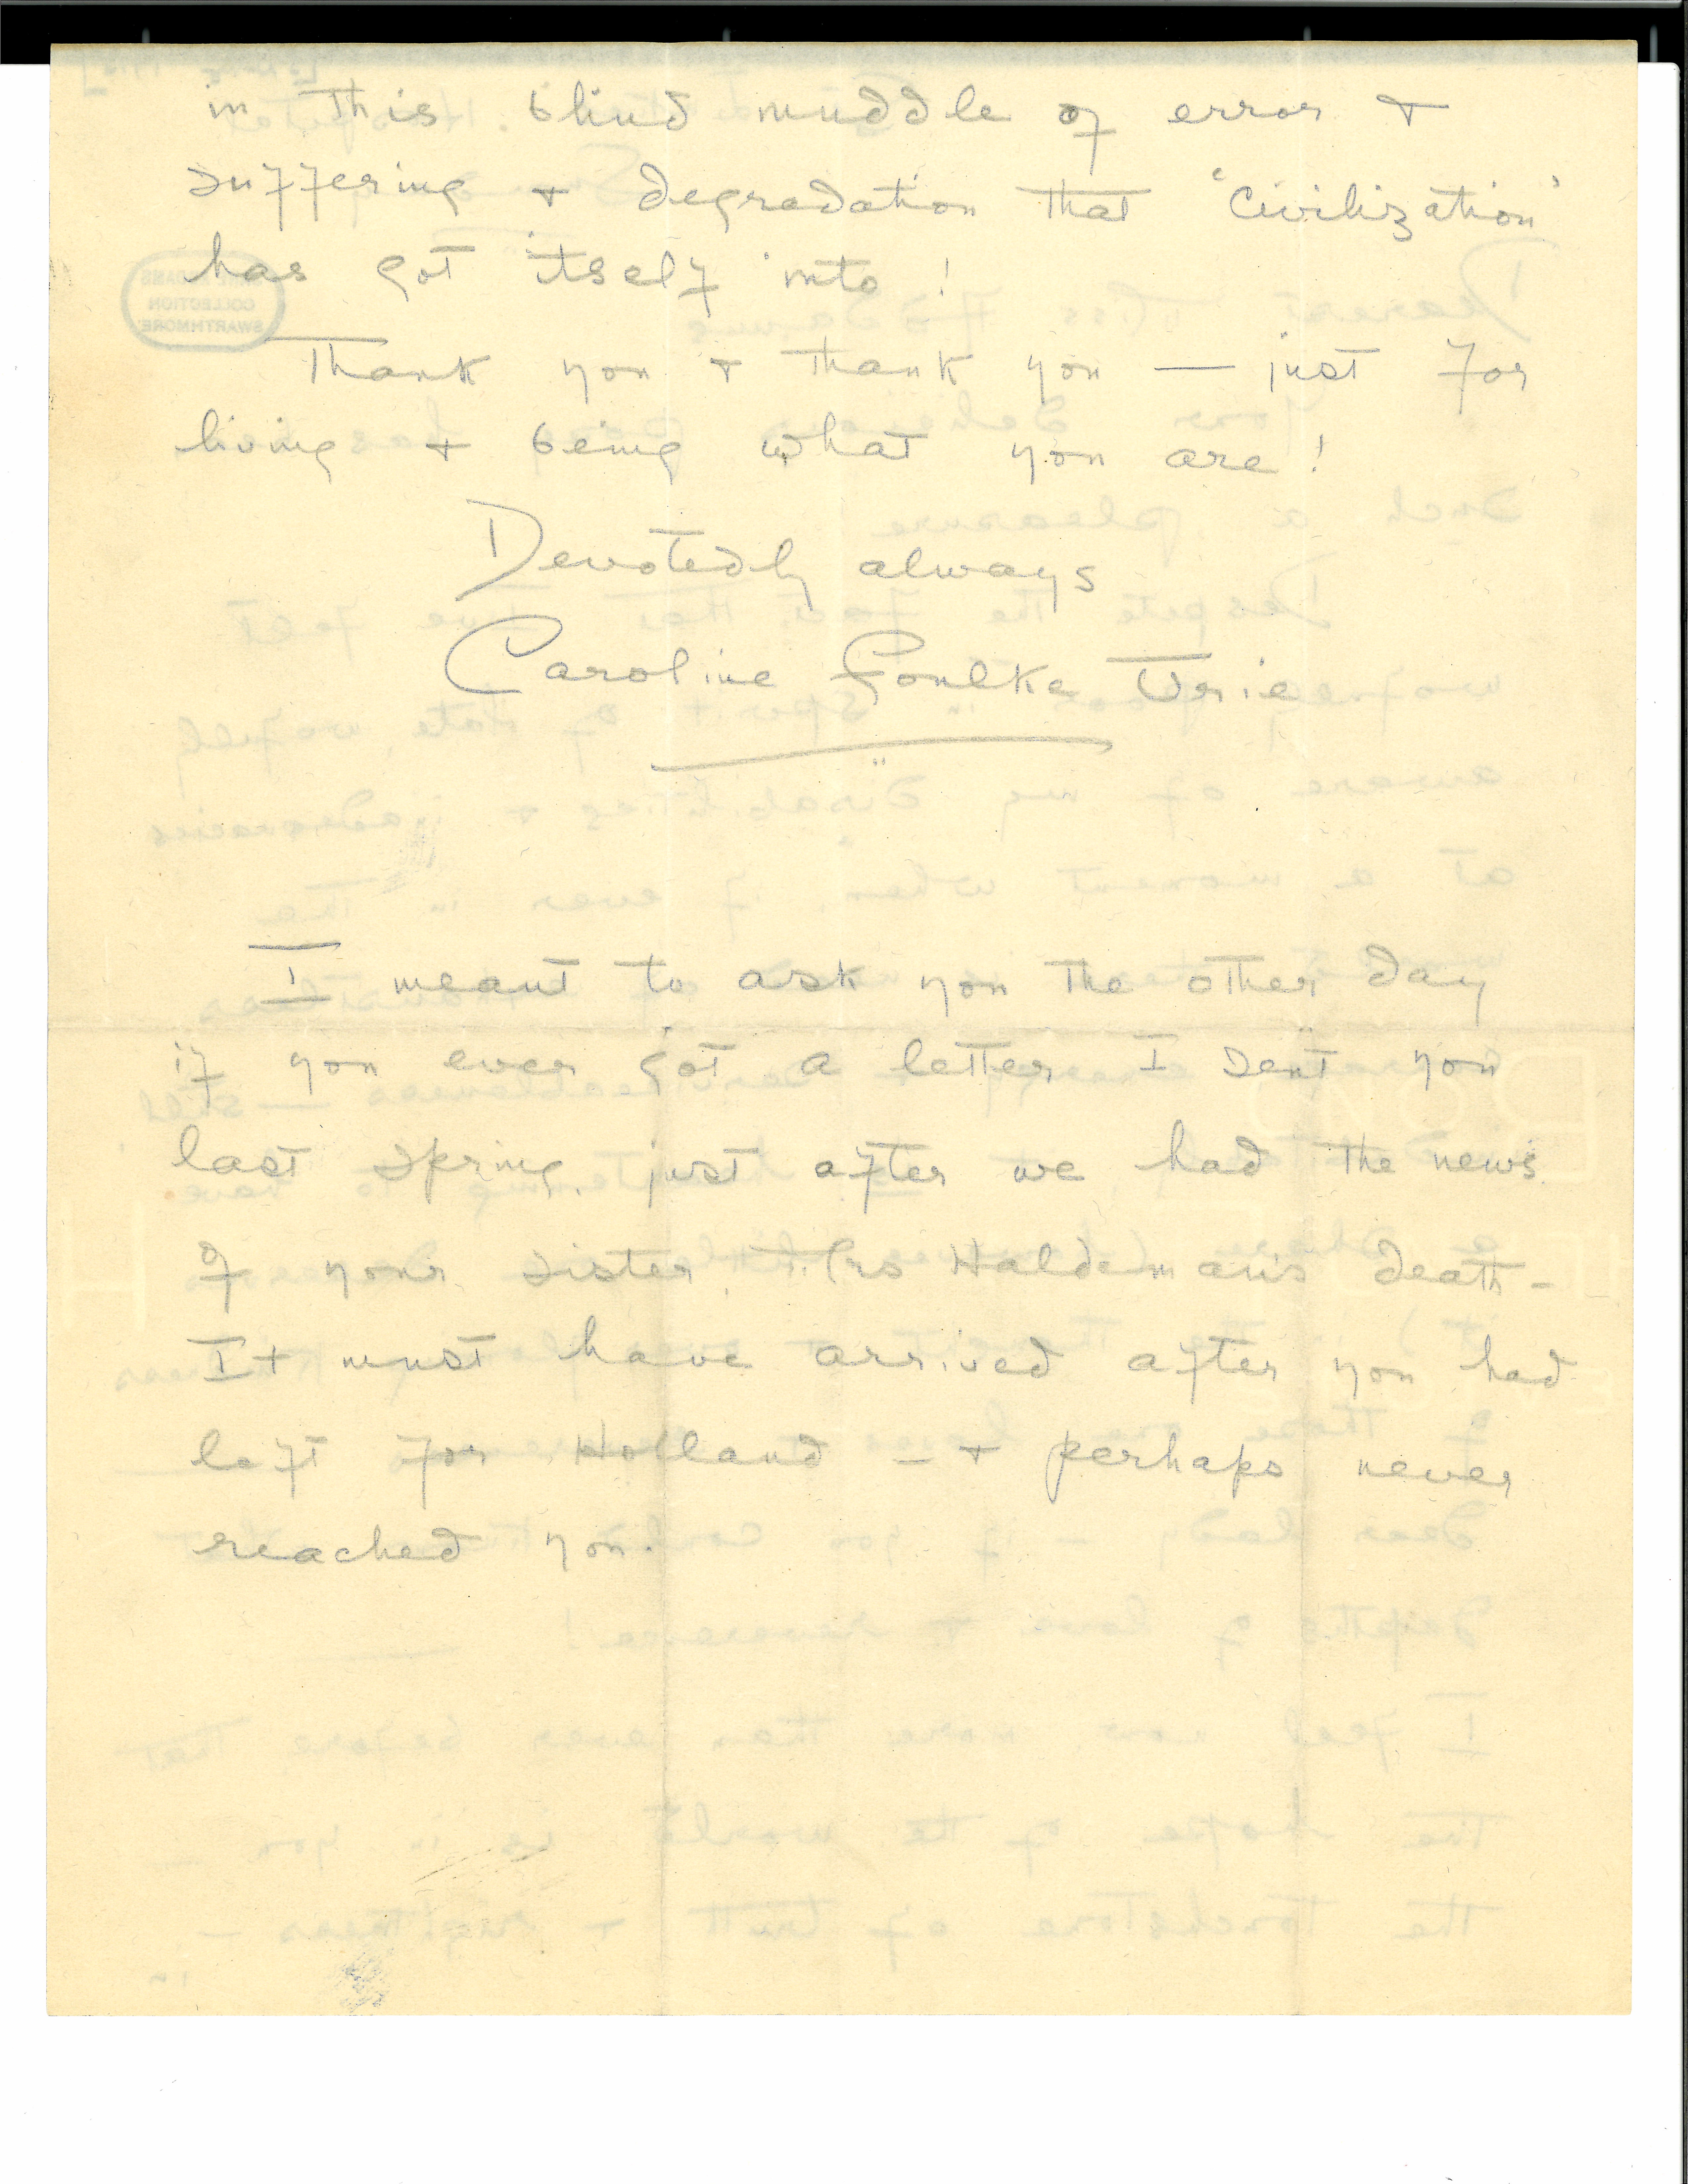 in this blind muddle of error &
suffering & degradation that "civilization"
has got itself into!
Thank you & thank you — just for
living & being what you are!
Devotedly always
Caroline Foulke Urie
I meant to ask you the other day
if you ever got a letter I sent you
last spring, just after we had the news
of your sister Mrs Haldeman's death -
It must have arrived after you had
left for Holland - & perhaps never
reached you.